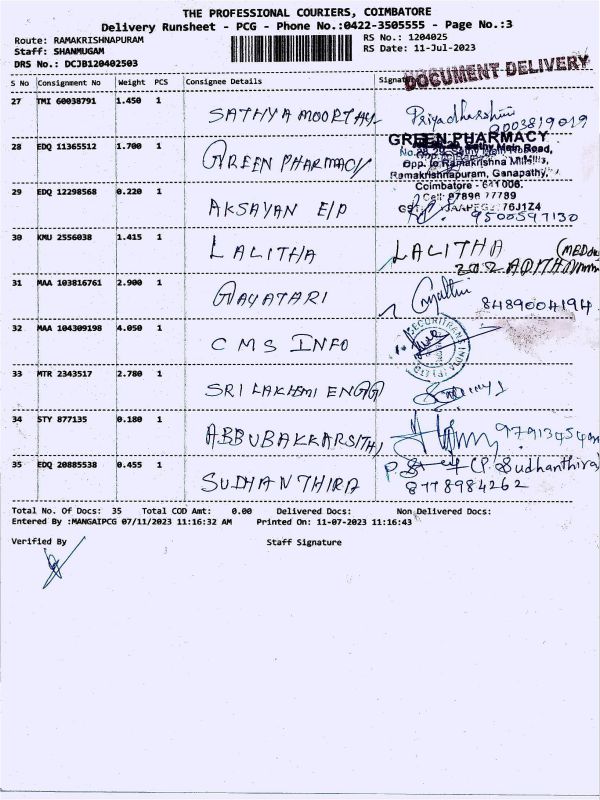 THE PROFESSIONAL COURIERS, COIMBATORE
Delivery Runsheet - PCG - Phone No.:0422-3505555 - Page No.:3
Route: RAMAKRISHNAPURAM
Staff: SHANMUGAM
DRS No.: DCJB120402503
RS No.: 1204025
RS Date: 11-Jul-2023
DOCUMENT DELIVERY
S No Consignment No Weight PCS Consignee Details
27 TMI 60038791 1.450 1 SATHYAMOORTHY Priyadharshini
9003819019
28 EDQ 11365512 1.700 1 GREEN PHARMACY
GREEN PHARMACY
Sathy Main Road,
Opp. to Ramakrishna Mills,
Ramakrishnapuram, Ganapathy,
Coimbatore - 641006.
Cell: 97896 77789
29 EDQ 12298568 0.220 1 AKSAYAN E/P 9500597130
30 KMU 2556038 1.415 1 LALITHA LALITHA
202 ADITHYA
31 MAA 103816761 2.900 1 GAYATARI 8489004194
32 MAA 104309198 4.050 1 CMS INFO
33 MTR 2343517 2.780 1 SRI LAKHMI ENGG
34 STY 877135 0.180 1 ABBUBAKKARSITHI
35 EDQ 20885538 0.455 1 SUDHANTHIRA (P. Sudhanthira)
8778984262
Total No. Of Docs: 35 Total COD Amt: 0.00 Delivered Docs: Non Delivered Docs:
Entered By :MANGAIPCG 07/11/2023 11:16:32 AM Printed On: 11-07-2023 11:16:43
Verified By Staff Signature